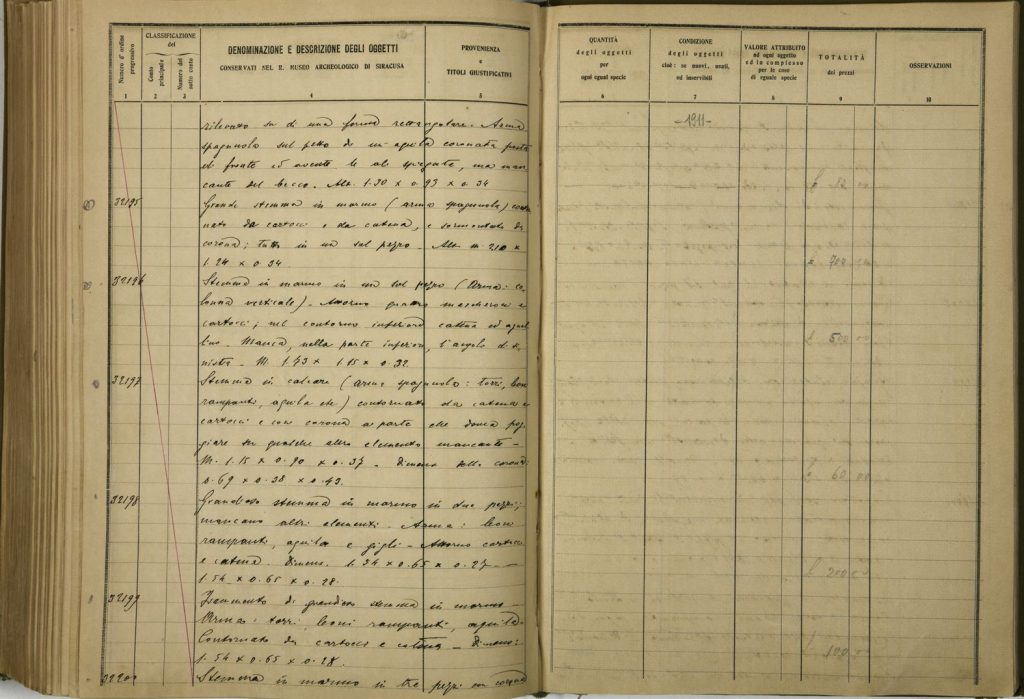 Numero d'ordine progressivo
CLASSIFICAZIONE
del
Conto principale
Numero del sotto conto
DENOMINAZIONE E DESCRIZIONE DEGLI OGGETTI
CONSERVATI NEL R. MUSEO ARCHEOLOGICO DI SIRACUSA
PROVENIENZA
e
TITOLI GIUSTIFICATIVI
1 2 3 4 5
rilevato su di una forma rettangolare. Arma
spagnola sul petto di un'aquila coronata
di fronte ed avente le ali spiegate, ma man-
cante del becco. Alt. 1.30 x 0.93 x 0.34
32195 Grande stemma in marmo (arma spagnuola) contor
nato da cartocci e da catena, e sormontato da
corona; tutto in un sol pezzo. Alt. m. 2.10 x
1.24 x 0.34
32196 Stemma in marmo in un sol pezzo (Arma: co-
lonna verticale). Attorno quattro mascheroni e
cartocci; nel contorno inferiore catena ed agnel-
lino. Manca, nella parte inferiore, l'angolo di si-
nistra. M. 1.43 x 1.15 x 0.32
32197 Stemma in calcare (arme spagnuola: torri, leoni
rampanti, aquila etc) contornato da catena e
cartocci e con corona a parte che doveva pog-
giare su qualche altro elemento mancante -
M. 1.15 x 0.90 x 0.37 - Dimens. della corona:
0.69 x 0.38 x 0.43.
32198 Grandioso stemma in marmo in due pezzi;
mancano altri elementi. Arma: leoni
rampanti, aquila e gigli - Attorno cartocci
e catena. Dimens. 1.34 x 0.65 x 0.27 -
1.54 x 0.65 x 0.28.
32199 Frammento di grandioso stemma in marmo -
Arma: torri, leoni rampanti, aquila -
Contornato da cartocci e catena - Dimens:
1.54 x 0.65 x 0.28.
32200 Stemma in marmo in tre pezzi con corona
QUANTITÀ
degli oggetti
per
ogni egual specie
CONDIZIONE
degli oggetti
cioè: se nuovi, usati,
od inservibili
VALORE ATTRIBUITO
ad ogni oggetto
ed in complesso
per le cose
di eguale specie
TOTALITÀ
dei prezzi
OSSERVAZIONI
6 7 8 9 10
-1911-
500 00
60 00
200 00
100 00